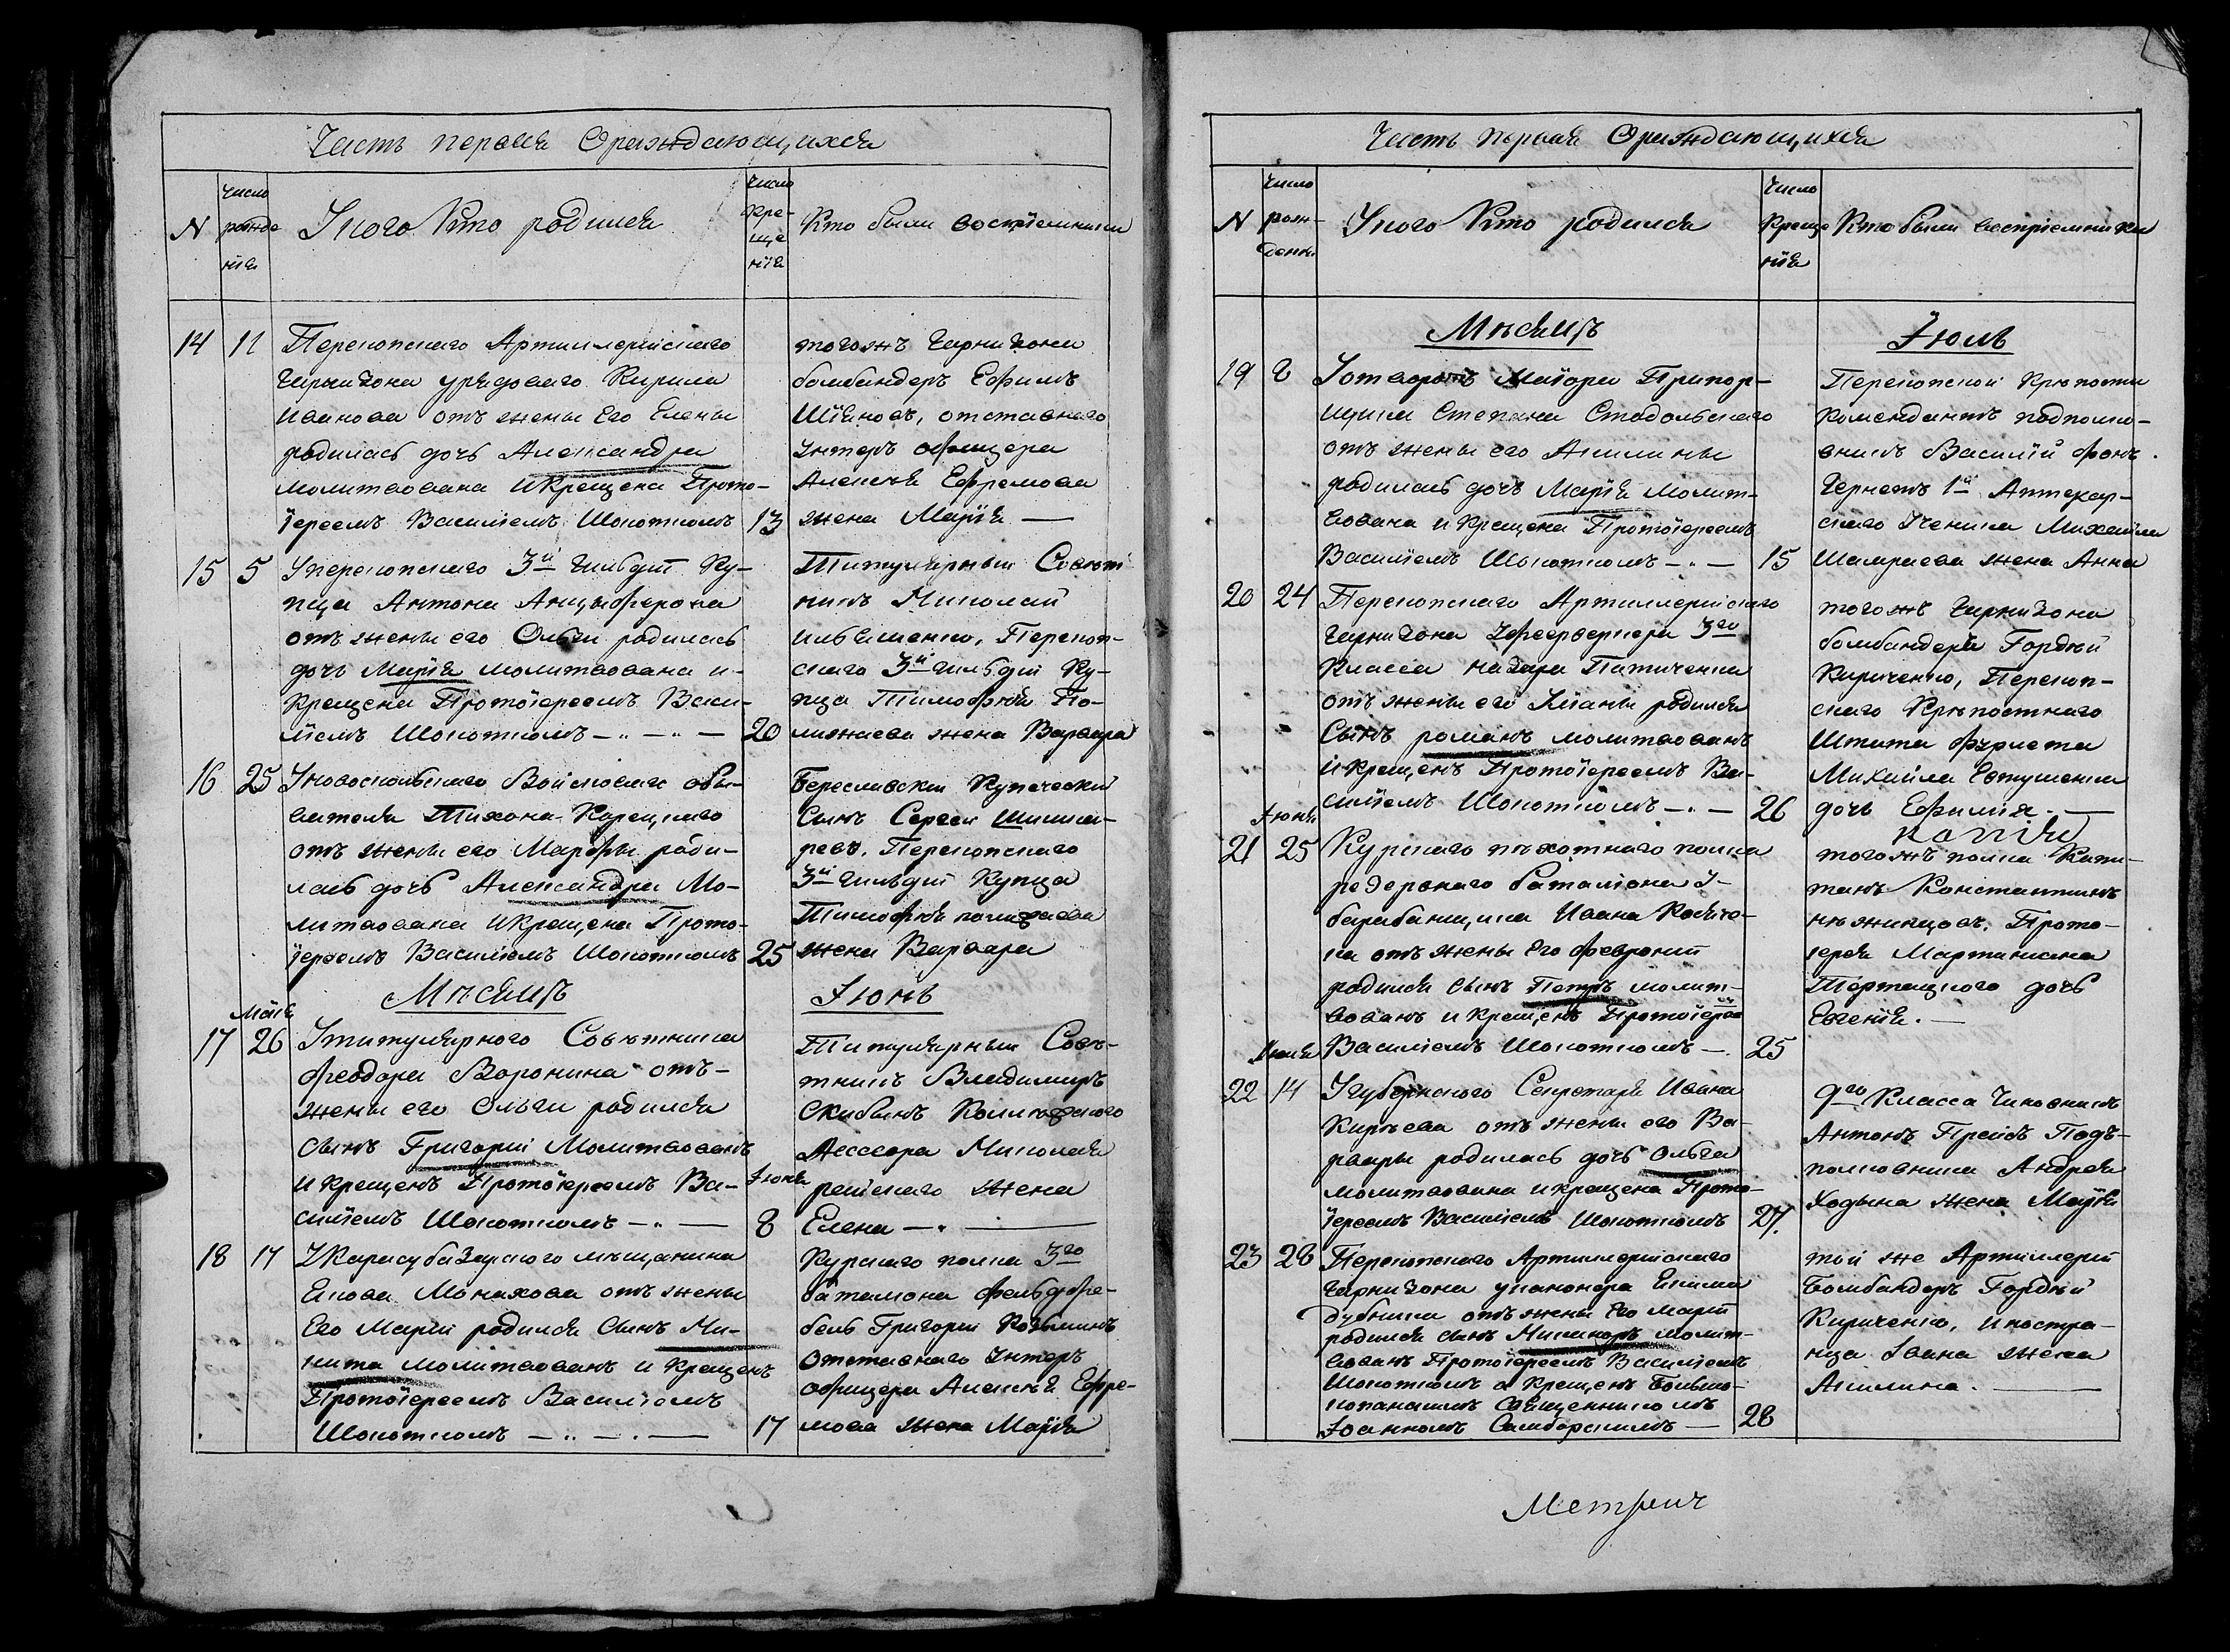 Часть первая О раждающихся
N
Число рожде нія
У кого Кто родился
Число Кре- ще нія
Кто были воспріемники
14 11
Перекопскаго Артиллерійскаго
Гарнизона урядоваго Кирила
Иванова отъ жены Его Елены
родилась дочь Александра
молитвована И Крещена Прото-
іереемъ Василіемъ Шокоткомъ 13
тогожъ Гарнизона
бомбандеръ Ефимъ
отставнаго
Унтеръ офицера
Алексѣя Ефремова
жена Марія —
15 5
У перекопскаго 3й Гильдіи Ку-
пца Антона Анцыферова
отъ жены его Ольги родилась
дочь Марія молитвована и-
Крещена Протоіереемъ Васи-
ліемъ Шокоткомъ — „ — „ — 20
Титулярный Совѣт
никъ Николай
Ильяшенко, Перекоп-
скаго 3й Гильдіи Ку-
пца Тимофѣя По-
лижаева жена Варвара
16 25
У новоскольскаго Войсковаго обы-
вателя Тихона Корецкаго
отъ жены его Марфы роди-
лась дочь Александра Мо-
литвована И Крещена Прото-
іереемъ Василіемъ Шокоткомъ 25
Береславски Купечески
Сынъ Сергеи Шишка-
ревъ, Перекопскаго
3й Гильдіи Купца
Тимофѣя полижаева
жена Варвара
Мѣсяцъ Іюнь
Маія
17 26
У титулярного Совѣтника
Феодора Воронина отъ-
жены его Ольги родился
сынъ Григорій Молитвованъ
и крещенъ Протоіереемъ Ва-
Іюня
силіемъ Шокоткомъ — „ — 8
Титулярныи Совѣ-
тникъ Владимиръ
Скибинъ Колежского
Ассесора Николая
жена
Елена — „ —
18 17
У Карасубазарского мѣщанина
Екова Монахова отъ жены
Его Маріи родился сынъ Ни-
кита молитвованъ и Крещенъ
Протоіереемъ Василіемъ
Шокоткомъ — „ — „ — 17
Курскаго полка 3го
баталіона Фельдфе-
бель Григорій Козьминъ
Отставнаго Унтеръ
Офицера Алексѣя Ефре-
мова жена Марія
Часть первая О раждающихся
N
Число рож- денія
У кого Кто родился
Число Креще нія
Кто были воспріемники
Мѣсяцъ Іюль
19 8
Маіора
Степана Стадольскаго
отъ жены его Акилины
родилась дочь Марія Молит-
вована и Крещена Протоіереемъ
Василіемъ Шокоткомъ — „ — 15
Перекопской Крѣпости
Комендантъ подполко-
вникъ Василій Фонъ
1й Аптекар-
скаго Ученика Михаила
Шамраева жена Анна
20 24
Перекопскаго Артиллерійскаго
Гарнизона У фееръверкера 3го
Класса назара Патиченка
отъ жены его родился
Сынъ романъ молитвованъ
И Крещенъ Протоіереемъ Ва-
силіемъ Шокоткомъ — „ — 26
тогожъ Гарнизона
бомбандера Гордѣй
Кириченко, Перекоп-
скаго Крѣпостнаго
Штата Фурлета
Михаила Евтушенка
дочь Ефимія —
Іюня
21 25
Курскаго пѣхотнаго полка
резервнаго баталіона У-
барабанщика Ивана
отъ жены Его Февроніи
родился сынъ Петръ молит-
вованъ и крещенъ Протоіерее
Василіемъ Шокоткомъ — 25
тогожъ полка Капи-
танъ Константинъ
Прото-
іерея Мартиніана
дочь
Евгенія. —
Іюля
22 14
У губернского Секретаря Ивана
Кирѣева отъ жены его Ва-
рвары родилась дочь Ольга
молитвована и крещена Прото-
іереемъ Василіемъ Шокоткомъ 27.
9го Класса Чиновникъ
Антонъ Прейсъ Подъ-
полковника Андрея
Ходыка жена Марія
23 28
Перекопскаго Артиллерійскаго
Гарнизона у канонера Екима
Дубника отъ жены Его маріи
родился сынъ Никаноръ молит-
вованъ Протоіереемъ Василіемъ
Шокоткомъ а Крещенъ Большо-
копанскимъ Священникомъ
Іоанномъ Самборскимъ — 28
той же Артиллеріи
Бомбандеръ Гордѣй
Кириченко, Иностра-
нца Ивана жена
Акилина. —
Метрич